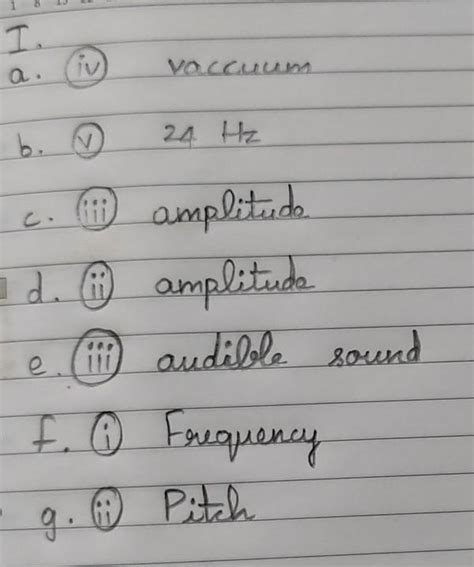 I.
a. iv vaccuum
b. v 24 Hz
c. iii amplitude
d. ii amplitude
e. iii audible sound
f. i Frequency
g. ii Pitch